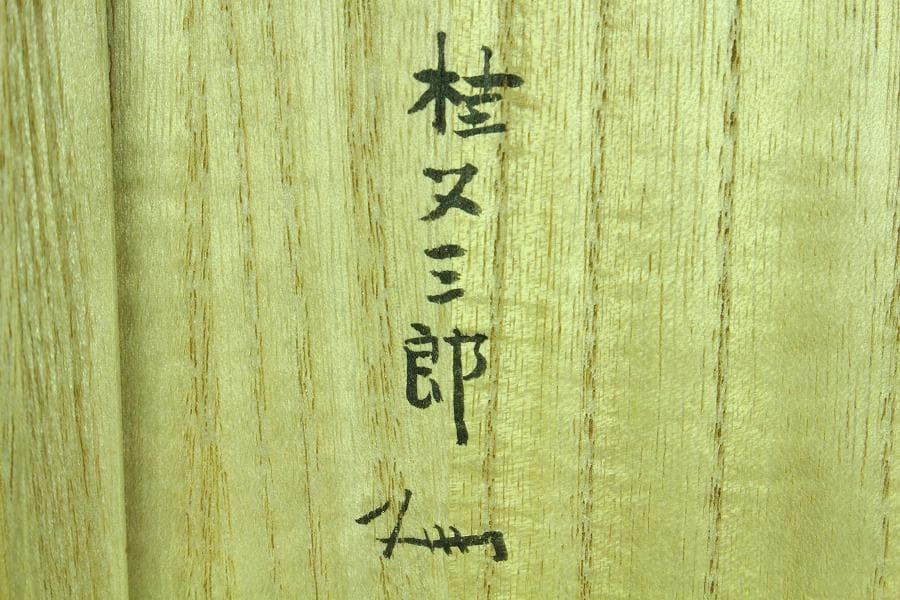 桂又三郎